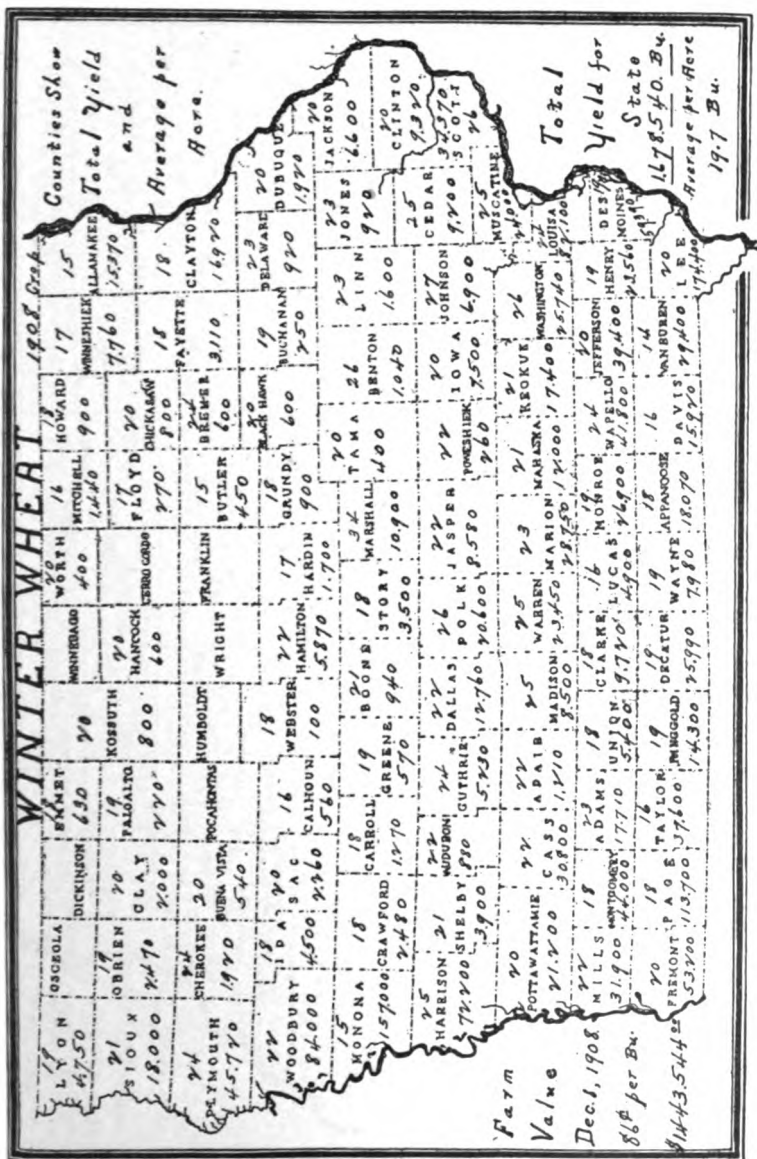 WINTER WHEAT
1908 Crop
Counties Show
Total Yield
and
Average per
Acre.
19
LYON
4,750
OSCEOLA
DICKINSON
18
EMMET
630
WINNEBAGO
20
WORTH
400
16
MITCHELL
1,440
18
HOWARD
900
17
WINNESHIEK
7,760
15
ALLAMAKEE
15,390
21
SIOUX
18,000
19
OBRIEN
2,470
20
CLAY
2,000
19
PALO ALTO
220
20
KOSSUTH
800
20
HANCOCK
600
CERRO GORDO
17
FLOYD
270
20
CHICKASAW
800
18
FAYETTE
3,110
18
CLAYTON
16,920
24
PLYMOUTH
45,720
24
CHEROKEE
1,920
20
BUENA VISTA
540
POCAHONTAS
HUMBOLDT
WRIGHT
FRANKLIN
15
BUTLER
450
24
BREMER
600
22
WOODBURY
84,000
18
IDA
4,500
20
SAC
2,260
16
CALHOUN
560
18
WEBSTER
100
22
HAMILTON
5,870
17
HARDIN
1,700
18
GRUNDY
900
20
BLACK HAWK
600
19
BUCHANAN
250
23
DELAWARE
920
20
DUBUQUE
1,920
15
MONONA
157,000
18
CRAWFORD
2,480
18
CARROLL
1,270
19
GREENE
570
21
BOONE
940
18
STORY
3,500
34
MARSHALL
10,900
20
TAMA
400
26
BENTON
1,040
23
LINN
1,600
23
JONES
920
20
JACKSON
6,600
25
HARRISON
72,200
21
SHELBY
3,900
22
AUDUBON
880
24
GUTHRIE
5,230
22
DALLAS
12,760
26
POLK
20,600
22
JASPER
8,580
22
POWESHIEK
260
20
IOWA
7,500
27
JOHNSON
6,900
25
CEDAR
9,200
20
CLINTON
9,320
34,370
SCOTT
26
20
POTTAWATTAMIE
21,200
22
CASS
30,800
22
ADAIR
1,210
25
MADISON
8,500
25
WARREN
23,450
23
MARION
28,750
21
MAHASKA
12,000
21
KEOKUK
17,400
26
WASHINGTON
25,740
25
MUSCATINE
LOUISA
82,100
22
MILLS
31,900
18
MONTGOMERY
44,000
23
ADAMS
17,710
18
UNION
5,400
18
CLARKE
9,720
16
LUCAS
4,900
19
MONROE
26,900
24
WAPELLO
41,800
20
JEFFERSON
39,400
19
HENRY
23,560
DES
MOINES
20
FREMONT
53,200
18
PAGE
113,700
16
TAYLOR
37,600
19
RINGGOLD
14,300
19
DECATUR
25,990
19
WAYNE
7,980
18
APPANOOSE
18,070
16
DAVIS
15,920
14
VAN BUREN
29,400
20
LEE
174,400
Farm
Value
Dec. 1, 1908.
86¢ per Bu.
$1,443,544.00
Total
Yield for
State
1,678,540. Bu.
Average per Acre
19.7 Bu.